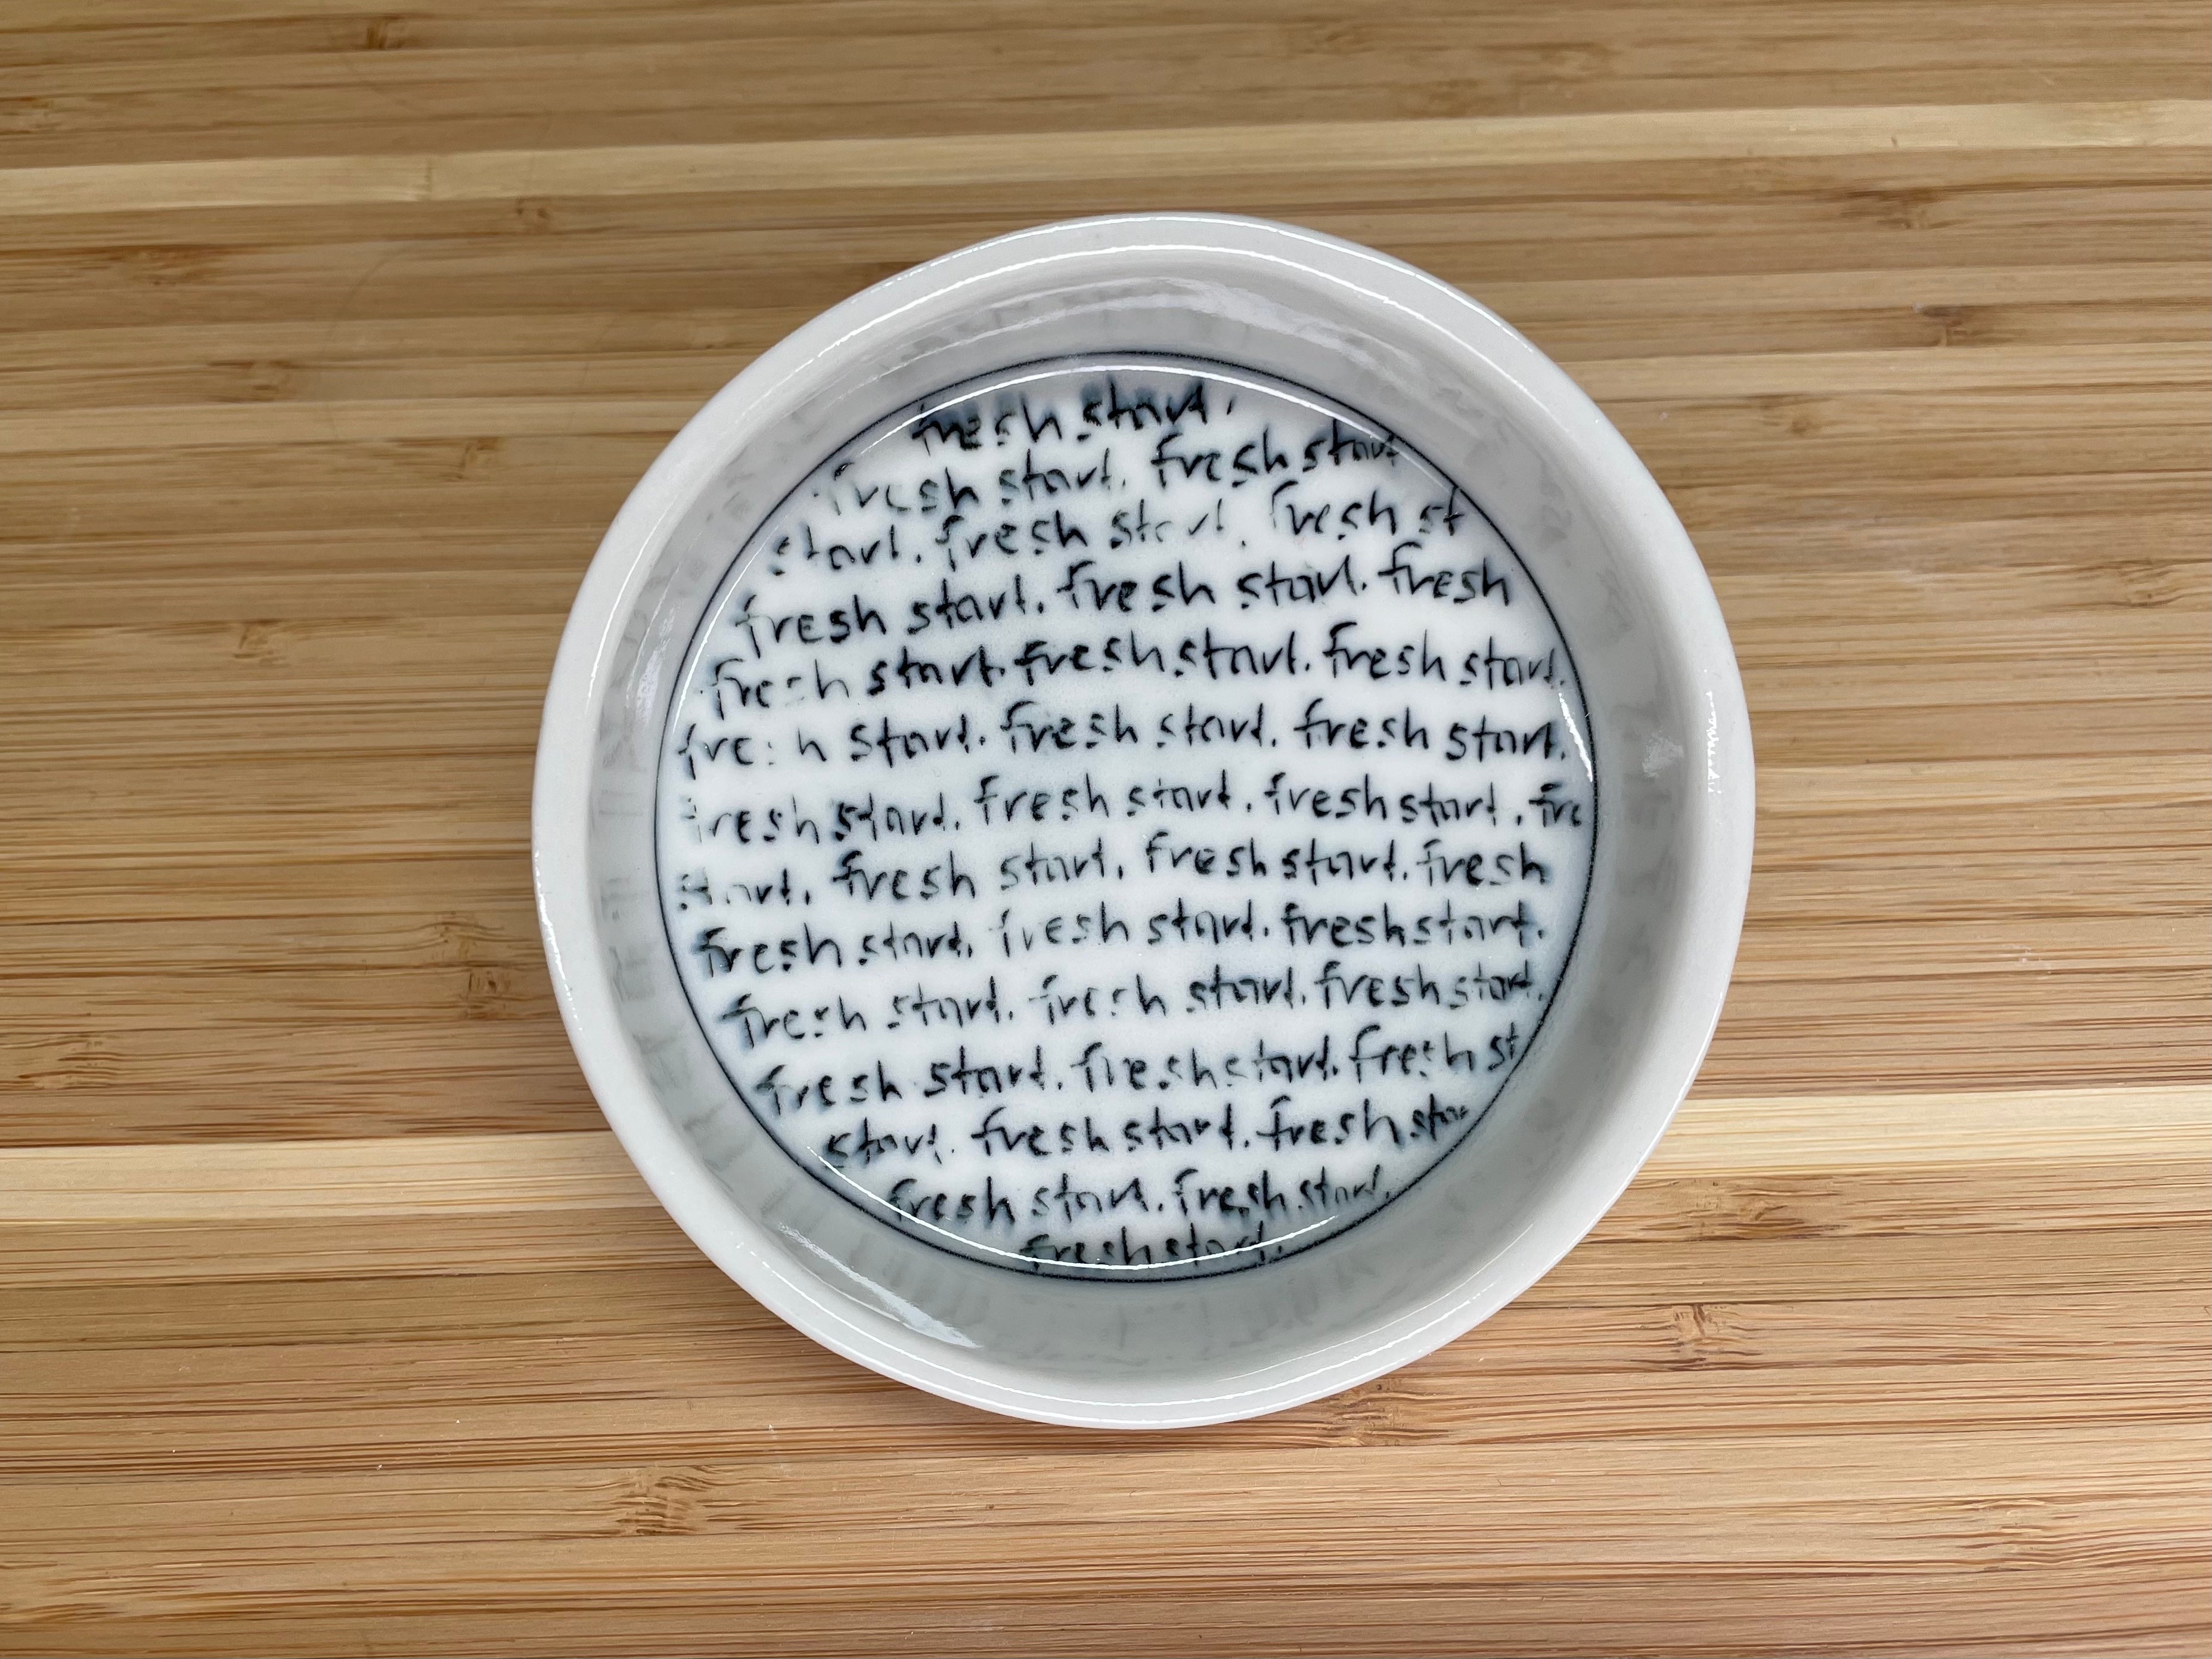 fresh start.
fresh start. fresh start
start. fresh start. fresh st
fresh start. fresh start. fresh
fresh start. fresh start. fresh start.
fresh start. fresh start. fresh start.
fresh start. fresh start. fresh start. fre
start. fresh start. fresh start. fresh
fresh start. fresh start. fresh start.
fresh start. fresh start. fresh start.
fresh start. fresh start. fresh st
start. fresh start. fresh star
fresh start. fresh start.
fresh start.